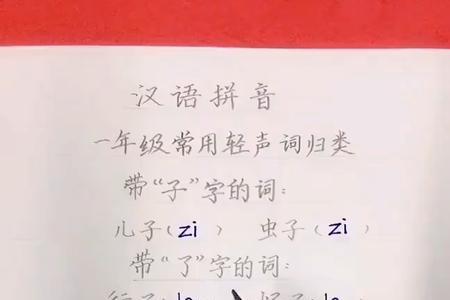 汉语拼音
一年级常用轻声词归类
带“子”字的词:
儿子(zi) 虫子(zi)
带“了”字的词: